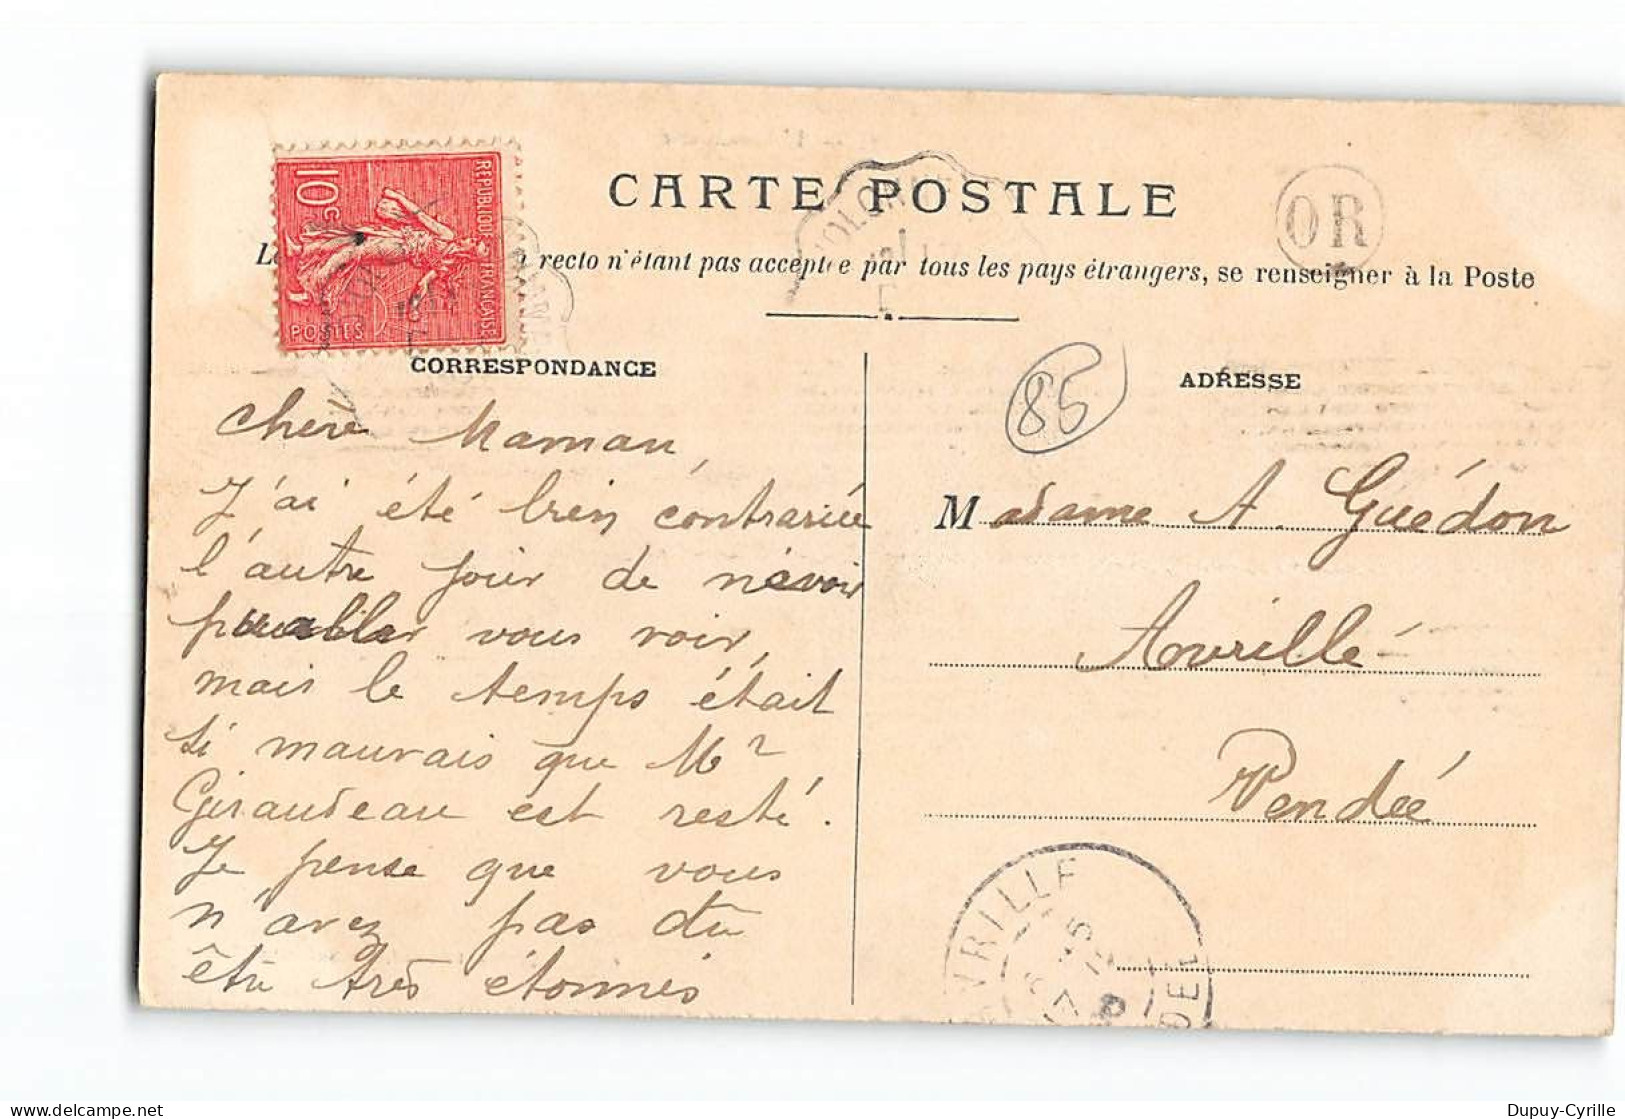 CARTE POSTALE
recto n'étant pas acceptée par tous les pays étrangers, se renseigner à la Poste
10c
REPUBLIQUE FRANÇAISE
POSTES
OR
CORRESPONDANCE
chère Maman,
J'ai été bien contrariée
l'autre jour de n'avoir
pu aller vous voir,
mais le temps était
si mauvais que Mr
Giraudeau est resté.
Je pense que vous
n'avez pas dû
être très étonnés
85
ADRESSE
Madame A. Guédon
Avrillé
Vendée
AVRILLE
Dupuy-Cyrille